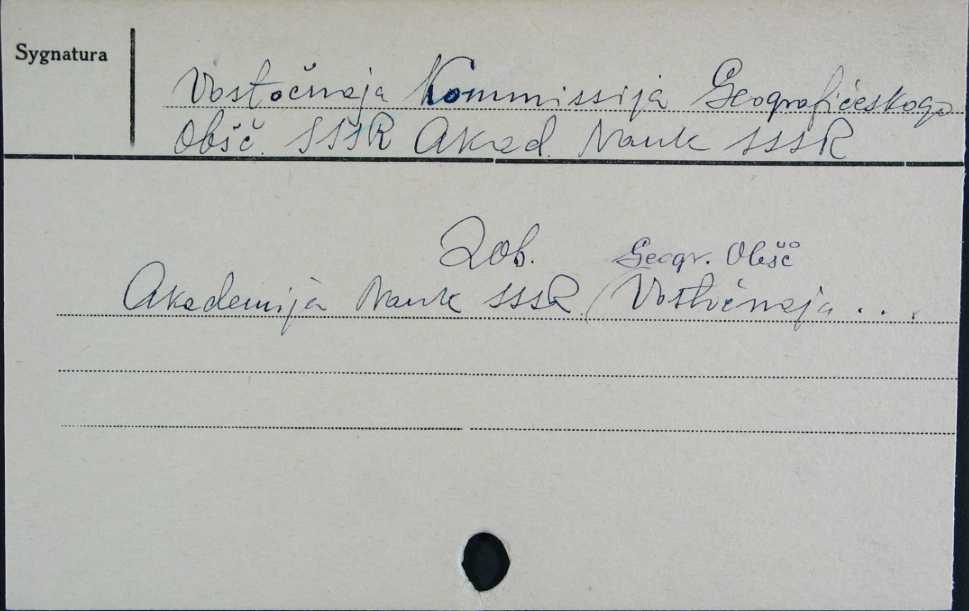 Sygnatura
Vostočnaja Kommissija Geografičeskogo
Obšč. SSSR Akad. Nauk SSSR
Zob. Geogr. Obšč
Akademija Nauk SSSR / Vostočnaja ...